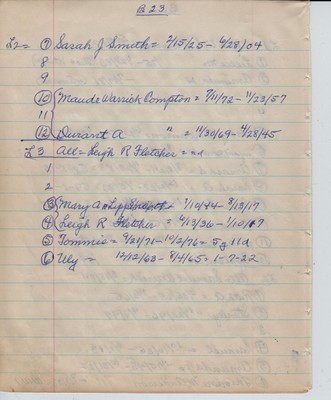 B 23
L2 = (7) Sarah J Smith = 2/15/25 - 6/28/04
8
9
(10) Maude Warrick Compton = 7/11/72 - 11/23/57
11
(12) Durant A " = 11/30/69 - 4/28/45
L3 All = Leigh R Fletcher = nd
1
2
(3) Mary A = 1/10/44 - 8/13/17
(4) Leigh R Fletcher = 6/13/36 - 1/10/
(5) Tommie = 9/21/71 - 10/2/76 = 5 y 11d
(6) Uly = 12/12/63 - 8/4/65 = 1-7-22